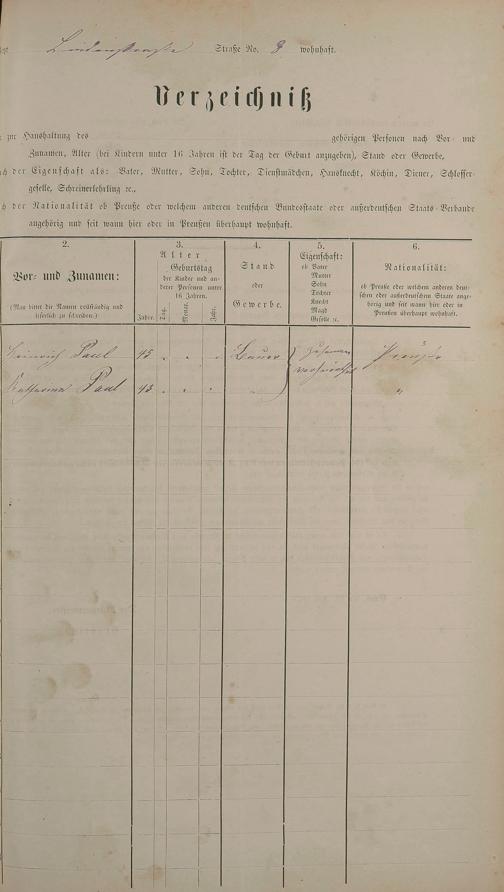 Lindenstraße Straße No. 8 wohnhaft.
Verzeichniß
zur Haushaltung des gehörigen Personen nach Vor- und
Zunamen, Alter (bei Kindern unter 16 Jahren ist der Tag der Geburt anzugeben), Stand oder Gewerbe,
der Eigenschaft als: Vater, Mutter, Sohn, Tochter, Dienstmädchen, Hausknecht, Köchin, Diener, Schlosser-
geselle, Schreinerlehrling ꝛc.,
der Nationalität ob Preuße oder welchem anderen deutschen Bundesstaate oder außerdeutschen Staats-Verbande
angehörig und seit wann hier oder in Preußen überhaupt wohnhaft.
2.
Vor- und Zunamen:
(Man bittet die Namen vollständig und
leserlich zu schreiben.)
3.
Alter
Geburtstag
der Kinder und an-
derer Personen unter
16 Jahren.
Jahre. Tag. Monat. Jahr.
4.
Stand
oder
Gewerbe.
5.
Eigenschaft:
ob Vater
Mutter
Sohn
Tochter
Knecht
Magd
Geselle ꝛc.
6.
Nationalität:
ob Preuße oder welchem anderen deut-
schen oder außerdeutschen Staate ange-
hörig und seit wann hier oder in
Preußen überhaupt wohnhaft.
Heinrich Paul 45 " " " Bauer
Katharina Paul 43 " " " "